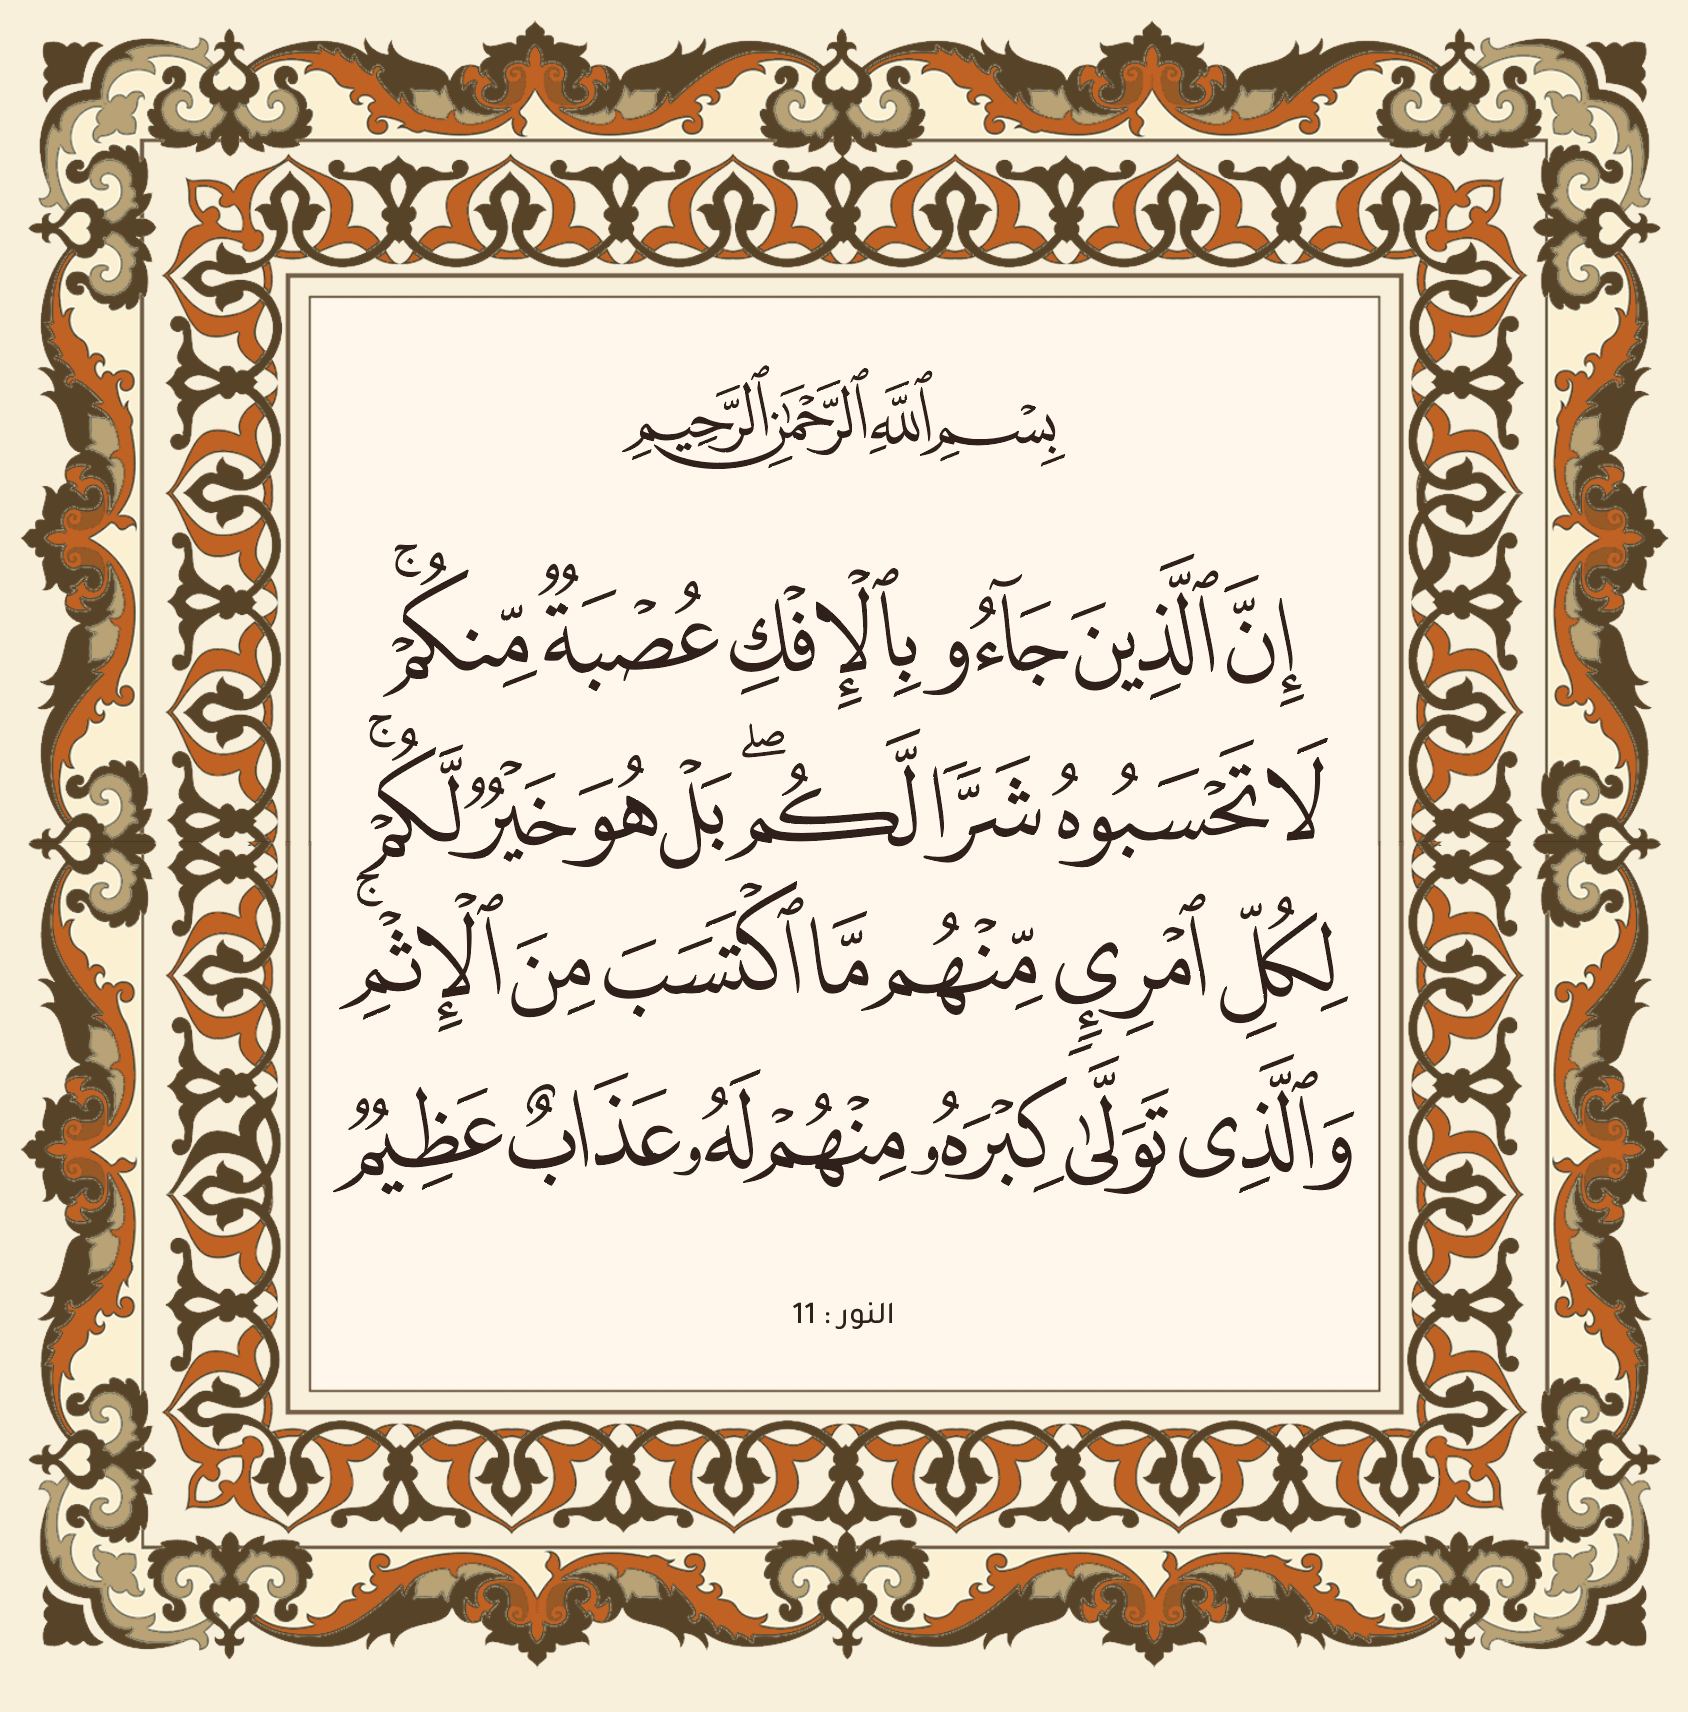 بِسْمِ ٱللَّهِ ٱلرَّحْمَٰنِ ٱلرَّحِيمِ
إِنَّ ٱلَّذِينَ جَآءُو بِٱلْإِفْكِ عُصْبَةٌ مِّنكُمْ ۚ
لَا تَحْسَبُوهُ شَرًّا لَّكُم ۖ بَلْ هُوَ خَيْرٌ لَّكُمْ ۚ
لِكُلِّ ٱمْرِئٍ مِّنْهُم مَّا ٱكْتَسَبَ مِنَ ٱلْإِثْمِ ۚ
وَٱلَّذِى تَوَلَّىٰ كِبْرَهُۥ مِنْهُمْ لَهُۥ عَذَابٌ عَظِيمٌ
النور : 11